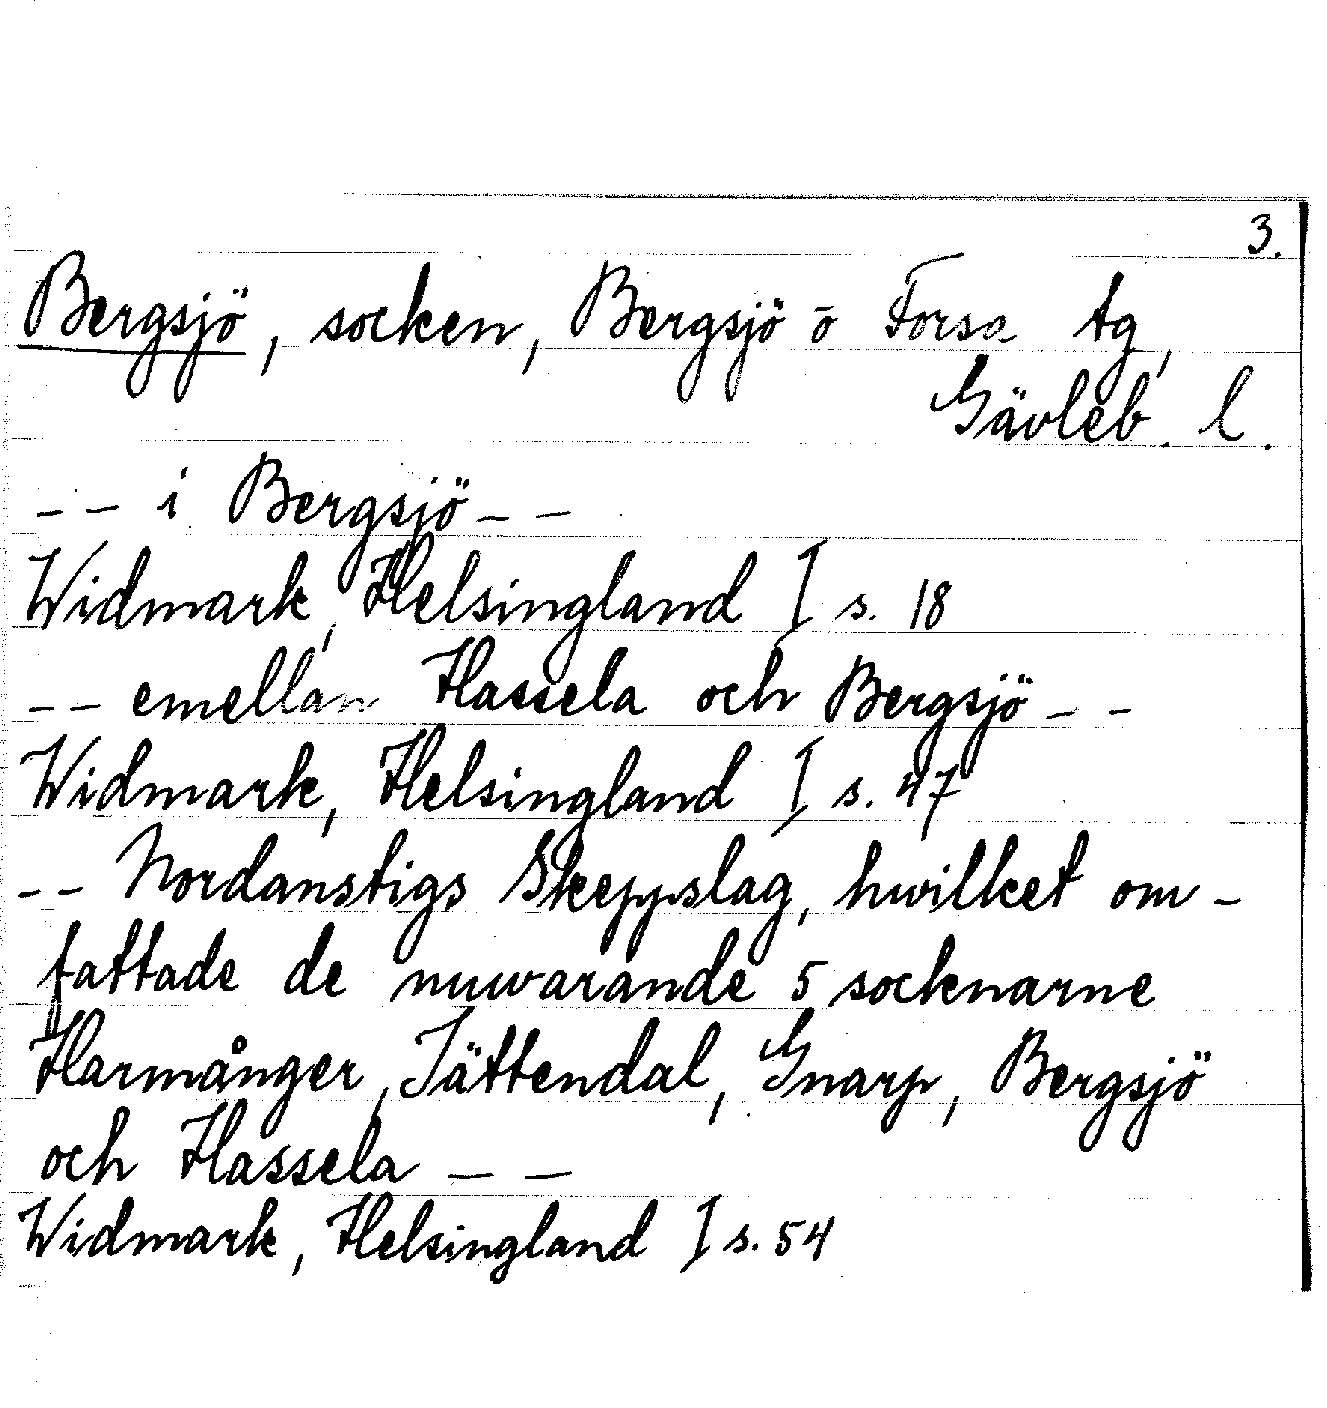 3.
Bergsjö, socken, Bergsjö o Forsa tg,
Gävleb. l.
-- i Bergsjö --
Widmark, Helsingland I s. 18
-- emellan Hassela och Bergsjö --
Widmark, Helsingland I s. 47
-- Nordanstigs Skeppslag, hwilket om-
fattade de nuwarande 5 socknarne
Harmånger, Jättendal, Gnarp, Bergsjö
och Hassela --
Widmark, Helsingland I s. 54